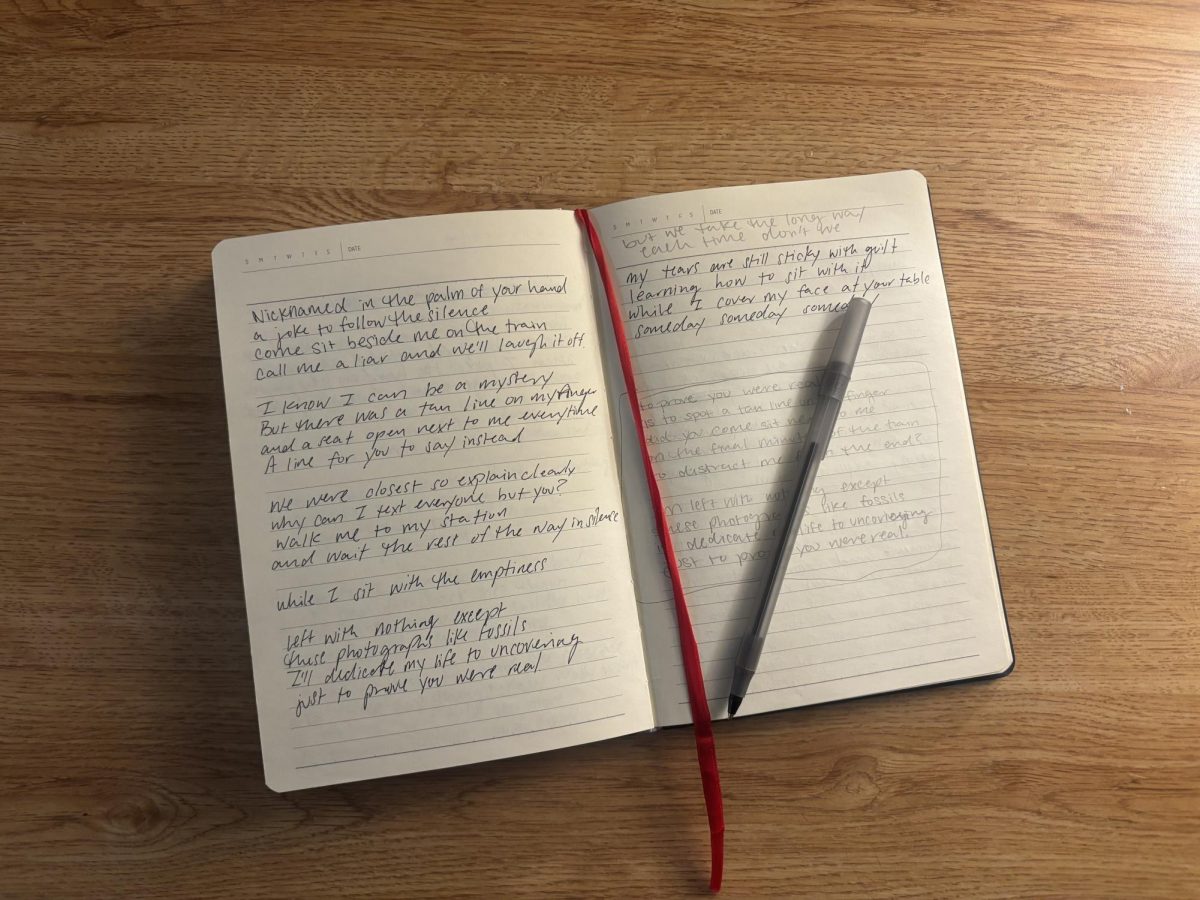 S M T W T F S DATE
Nicknamed in the palm of your hand
a joke to follow the silence
come sit beside me on the train
call me a liar and we'll laugh it off.
I know I can be a mystery
But there was a tan line on my finger
and a seat open next to me everytime
A line for you to say instead
We were closest so explain clearly
why can I text everyone but you?
walk me to my station
and wait the rest of the way in silence
while I sit with the emptiness
left with nothing except
these photographs like fossils
I'll dedicate my life to uncovering
just to prove you were real
S M T W T F S DATE
but we take the long way
each time don't we
my tears are still sticky with guilt
learning how to sit with it
while I cover my face at your table
someday someday someday
to prove you were real
is to spot a tan line finger
did you come sit next to me
on the final of the train
to distract me the end?
left with nothing except
these photographs like fossils
dedicate life to uncovering
just to prove you were real.